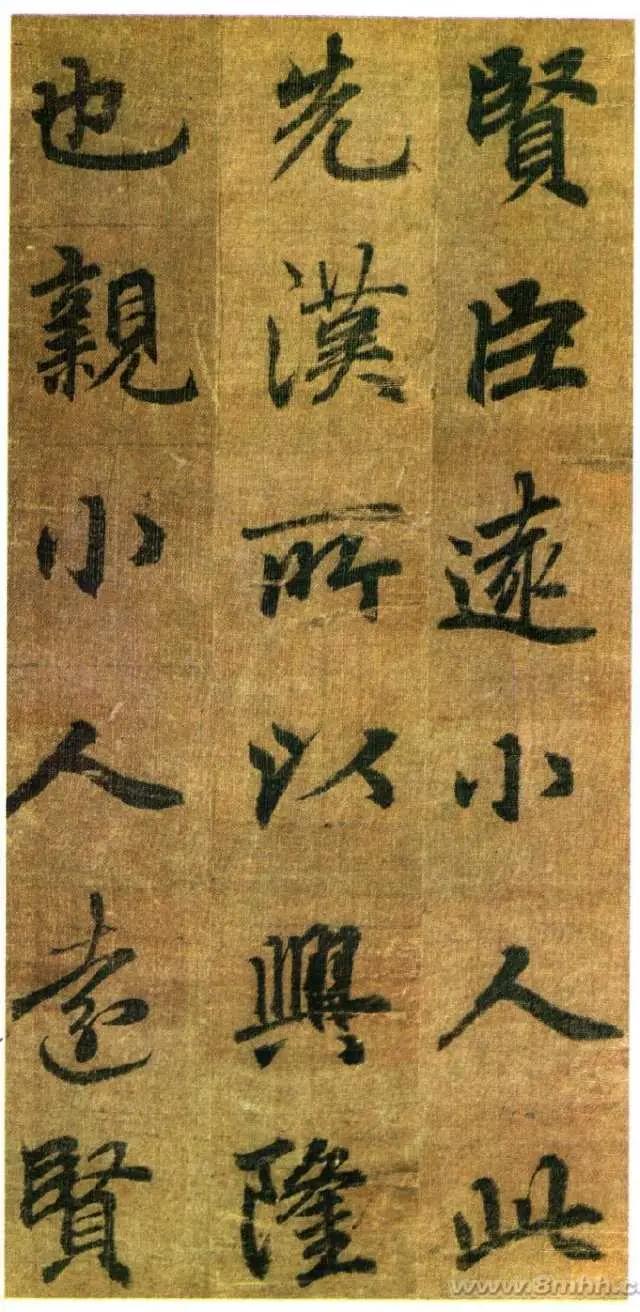 賢臣遠小人此
先漢所以興隆
也親小人遠賢
www.8mhh.c